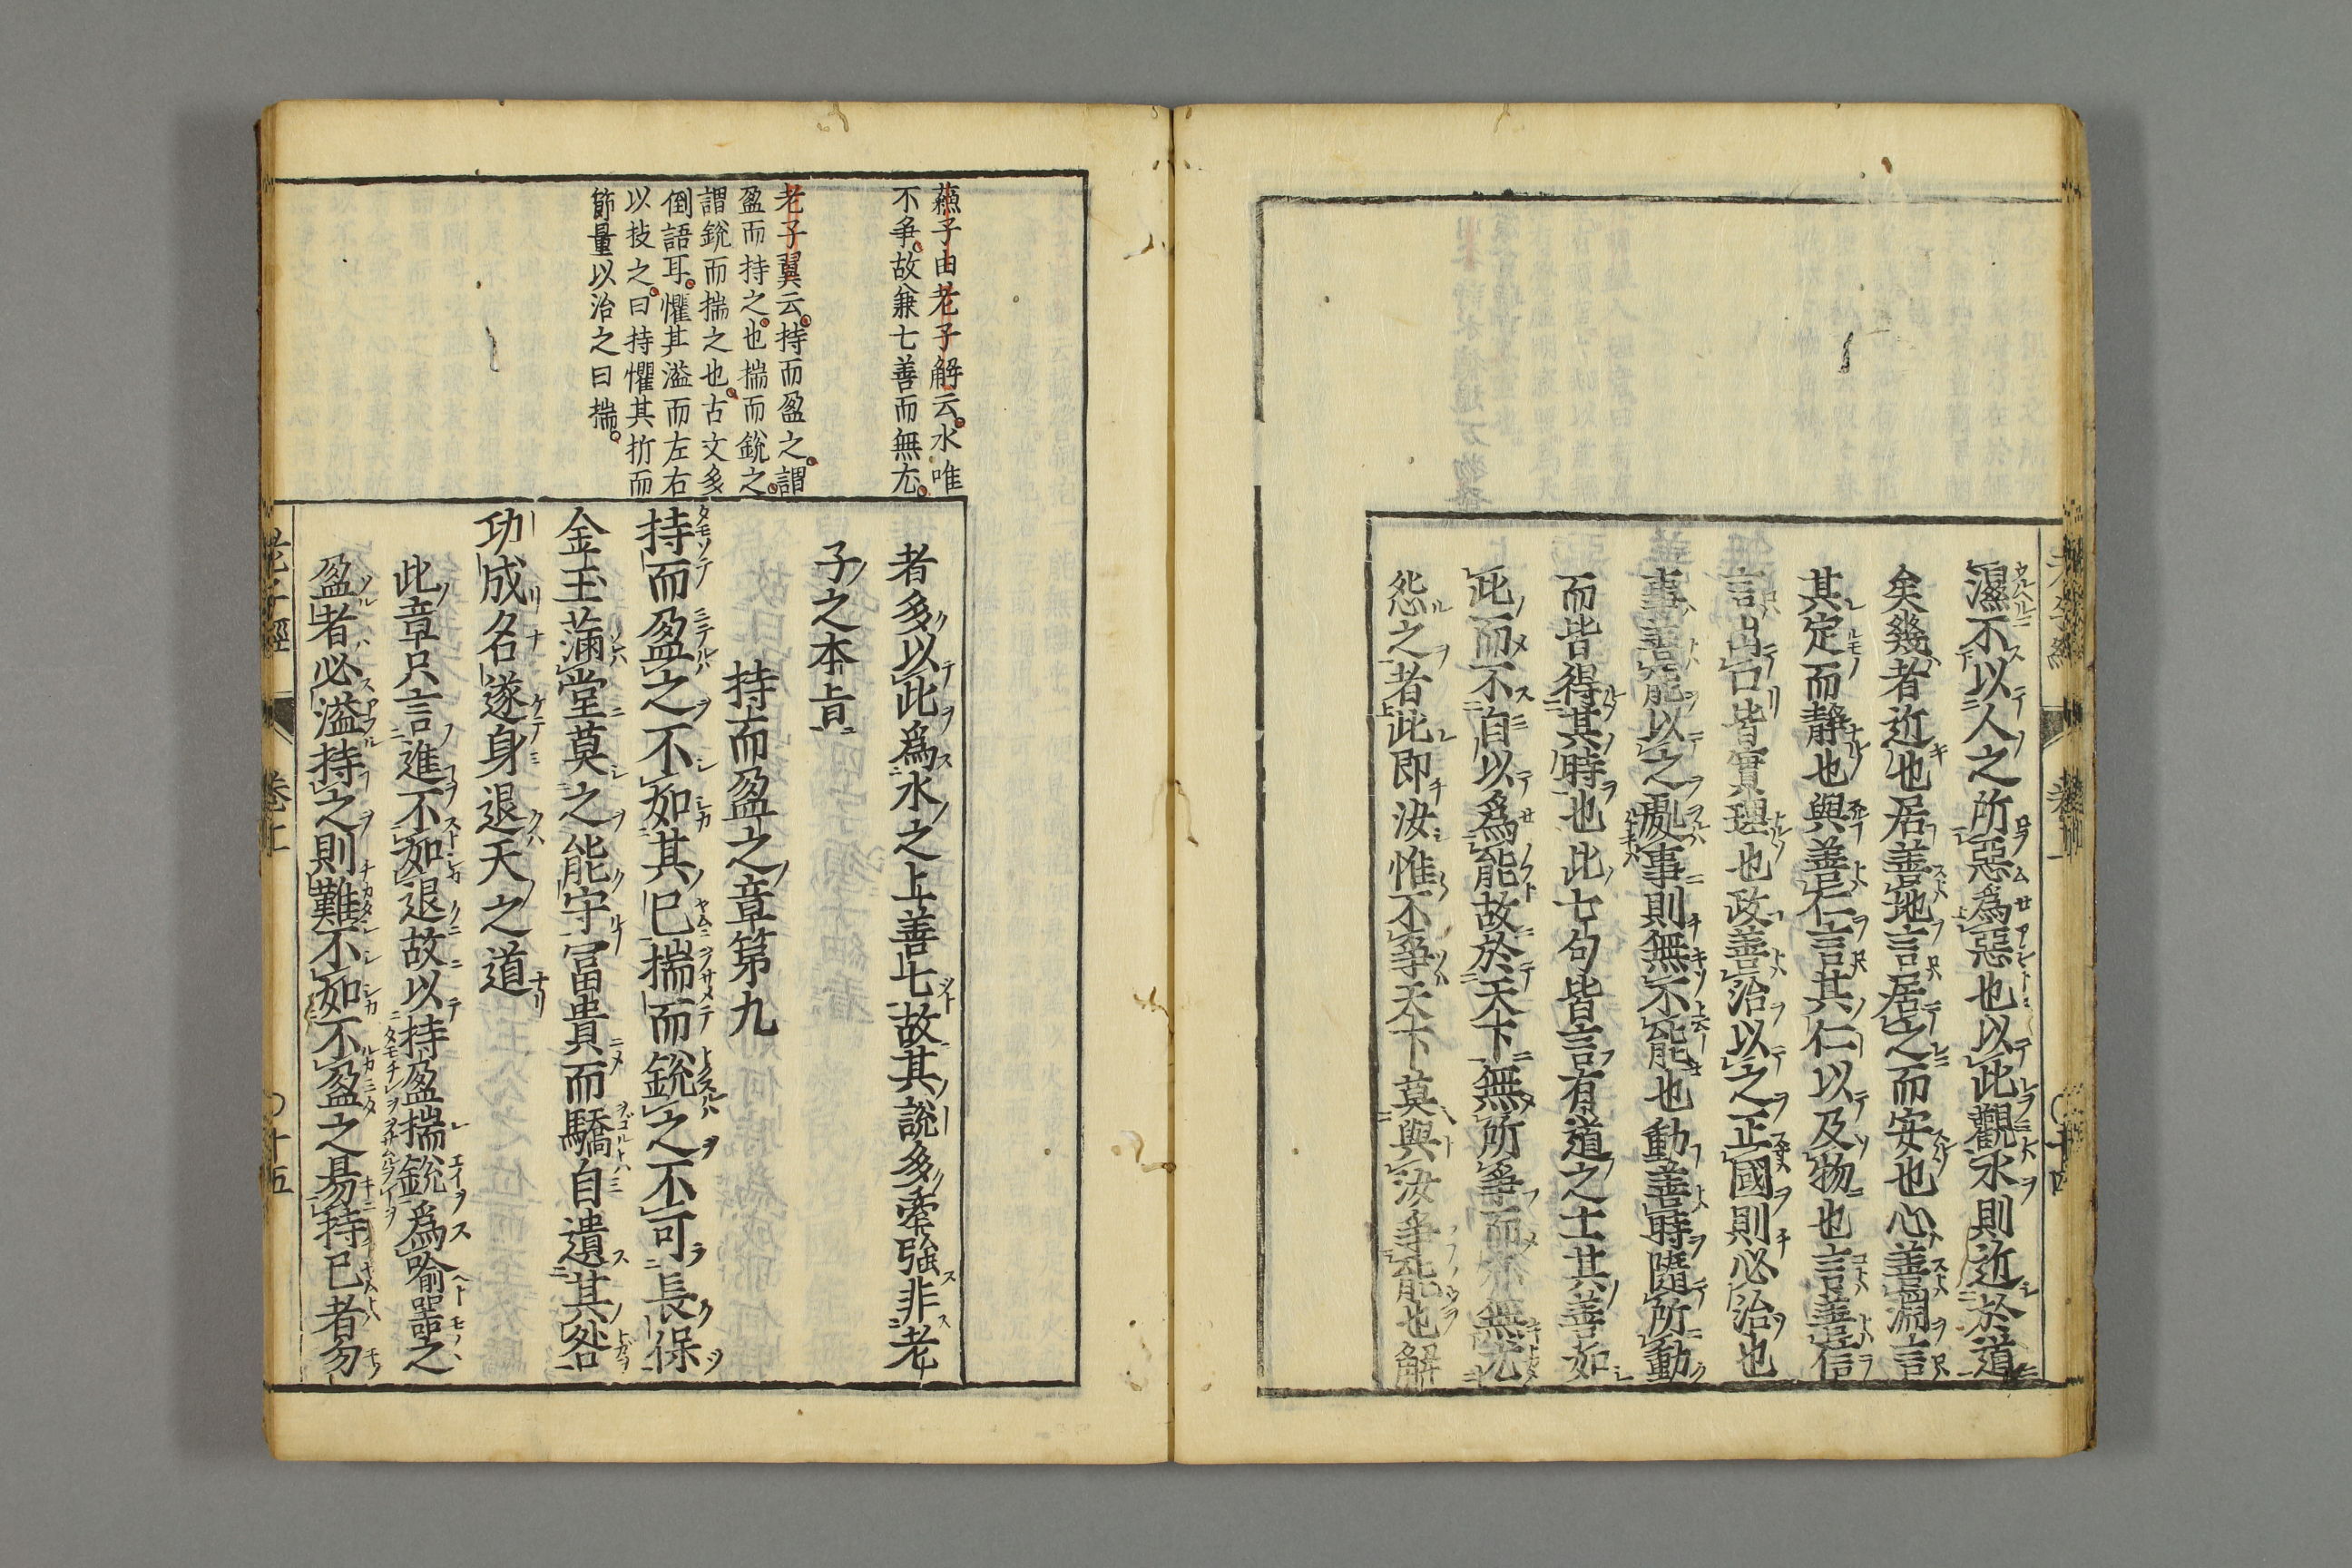 濕不以人之所惡爲惡也以此觀水則近於道
矣幾者近也居善地言居之而安也心善淵言
其定而靜也與善仁言其仁以及物也言善信
言出口皆實理也政善治以之正國則必治也
事善能以之處事則無不能也動善時隨所動
而皆得其時也此七句皆言有道之士其善如
此而不自以爲能故於天下無所爭而亦無尤
怨之者此即汝惟不爭天下莫與汝爭能也解
蘓子由老子解云水唯
不爭故兼七善而無尤
老子翼云持而盈之謂
盈而持之也揣而銳之
謂銳而揣之也古文多
倒語耳懼其溢而左右
以扶之曰持懼其折而
節量以治之曰揣
者多以此爲水之上善七故其說多牽强非老
子之本旨
持而盈之章第九
持而盈之不如其已揣而銳之不可長保
金玉滿堂莫之能守冨貴而驕自遺其咎
功成名遂身退天之道
此章只言進不如退故以持盈揣銳爲喻噐之
盈者必溢持之則難不如不盈之易持已者勿
老子經 卷上 〇十五